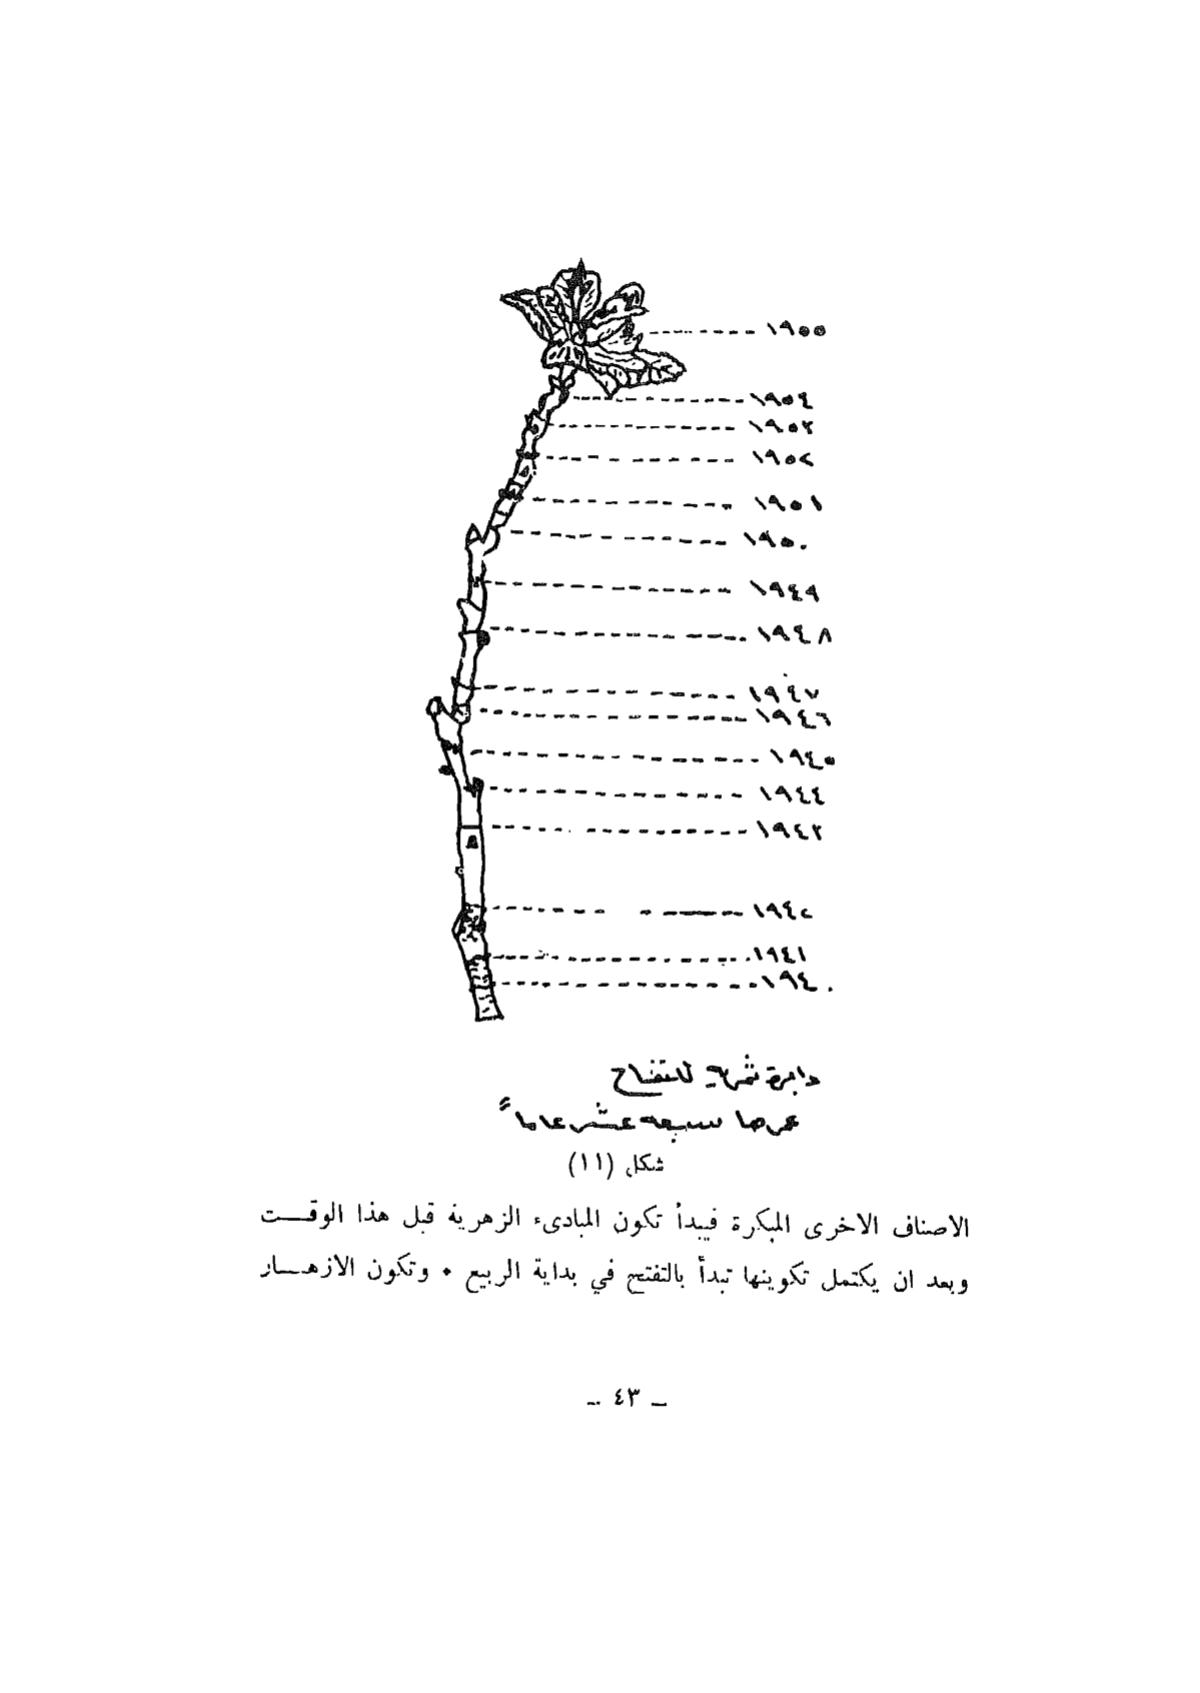 ١٩٥٥
١٩٥٤
١٩٥٣
١٩٥٢
١٩٥١
١٩٥٠
١٩٤٩
١٩٤٨
١٩٤٧
١٩٤٦
١٩٤٥
١٩٤٤
١٩٤٣
١٩٤٢
١٩٤١
١٩٤٠
دابرة ثمرية للتفاح
عمرها سبعة عشر عاماً
شكل (١١)
الاصناف الاخرى المبكرة فيبدأ تكون المبادىء الزهرية قبل هذا الوقـــت
وبعد ان يكتمل تكوينها تبدأ بالتفتح في بداية الربيع ٠ وتكون الازهـــار
ــ ٤٣ ــ